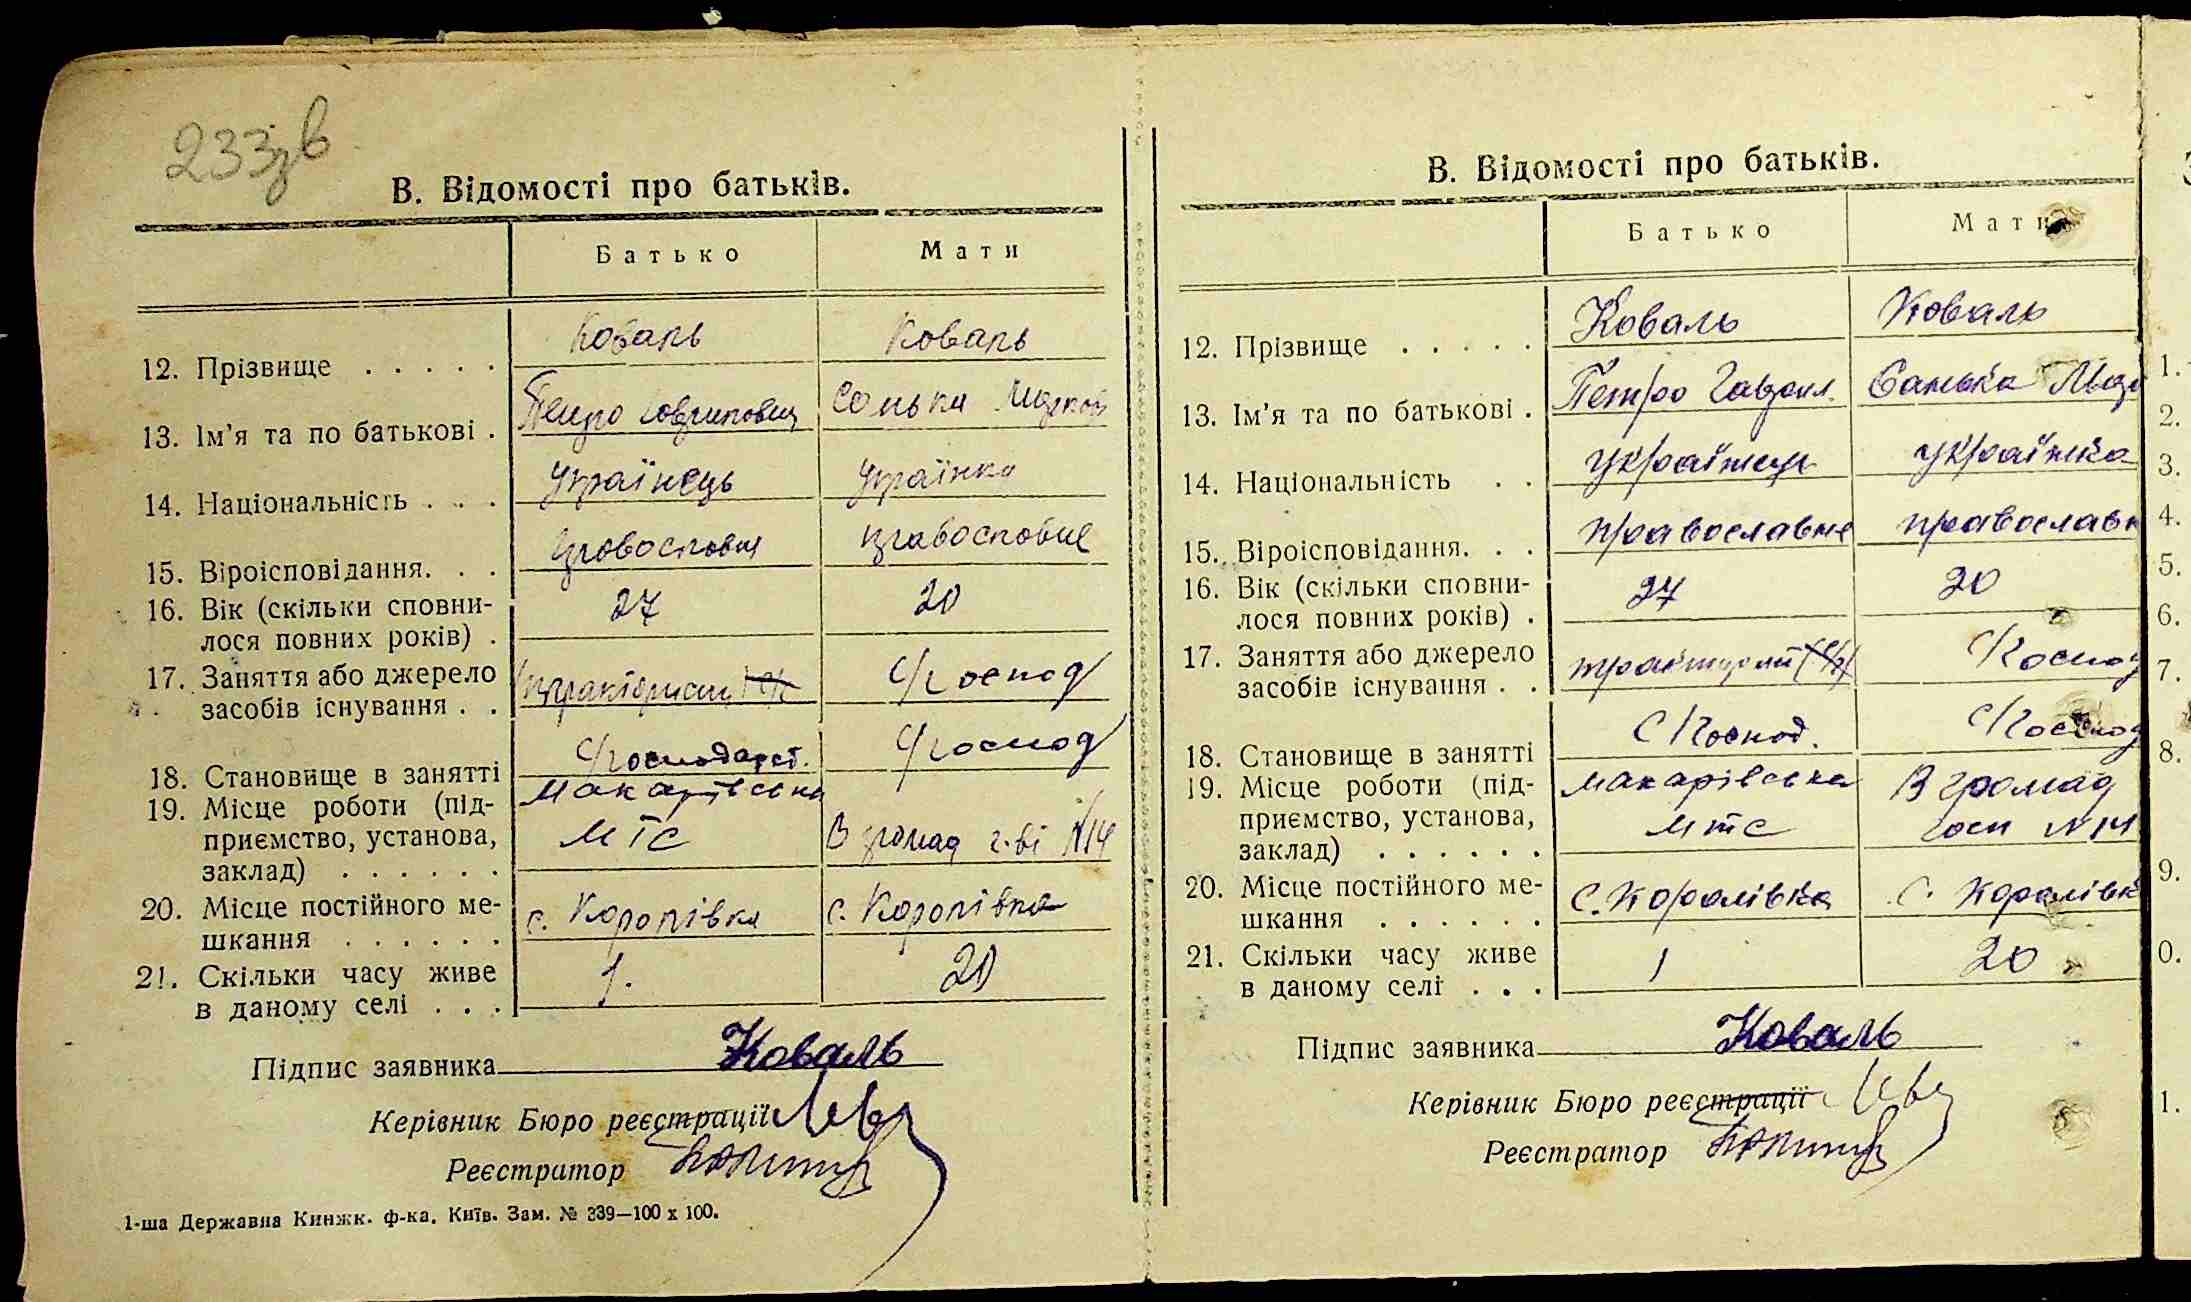 233зв
В. Відомості про батьків.
Батько Мати
12. Прізвище . . . . . Коваль Коваль
13. Ім'я та по батькові . Петро Гаврилович Санька
14. Національність . . . Українець Українка
15. Віроісповідання. . . православне православне
16. Вік (скільки сповни- 27 20
лося повних років) .
17. Заняття або джерело с/господ
засобів існування . .
18. Становище в занятті с/господарст. с/господ
19. Місце роботи (під- Макарівська
приємство, установа, МТС В громад г-ві №14
заклад) . . . . . .
20. Місце постійного ме- с. Королівка с. Королівка
шкання . . . . . .
21. Скільки часу живе 1. 20
в даному селі . . .
Підпис заявника Коваль
Керівник Бюро реєстрації
Реєстратор
1-ша Державна Книжк. ф-ка. Київ. Зам. № 339—100 х 100.
В. Відомості про батьків.
Батько Мати
12. Прізвище . . . . . Коваль Коваль
13. Ім'я та по батькові . Петро Гаврил. Санька
14. Національність . . українець українка
15. Віроісповідання. . . православне православн
16. Вік (скільки сповни- 27 20
лося повних років) .
17. Заняття або джерело с/господ
засобів існування . .
18. Становище в занятті с/господ. с/господ
19. Місце роботи (під- Макарівська В громад
приємство, установа, мтс госп №14
заклад) . . . . . .
20. Місце постійного ме- с. Королівка с. Королівк
шкання . . . . . .
21. Скільки часу живе 1 20
в даному селі . . .
Підпис заявника Коваль
Керівник Бюро реєстрації
Реєстратор
1.
2.
3.
4.
5.
6.
7.
8.
9.
0.
1.